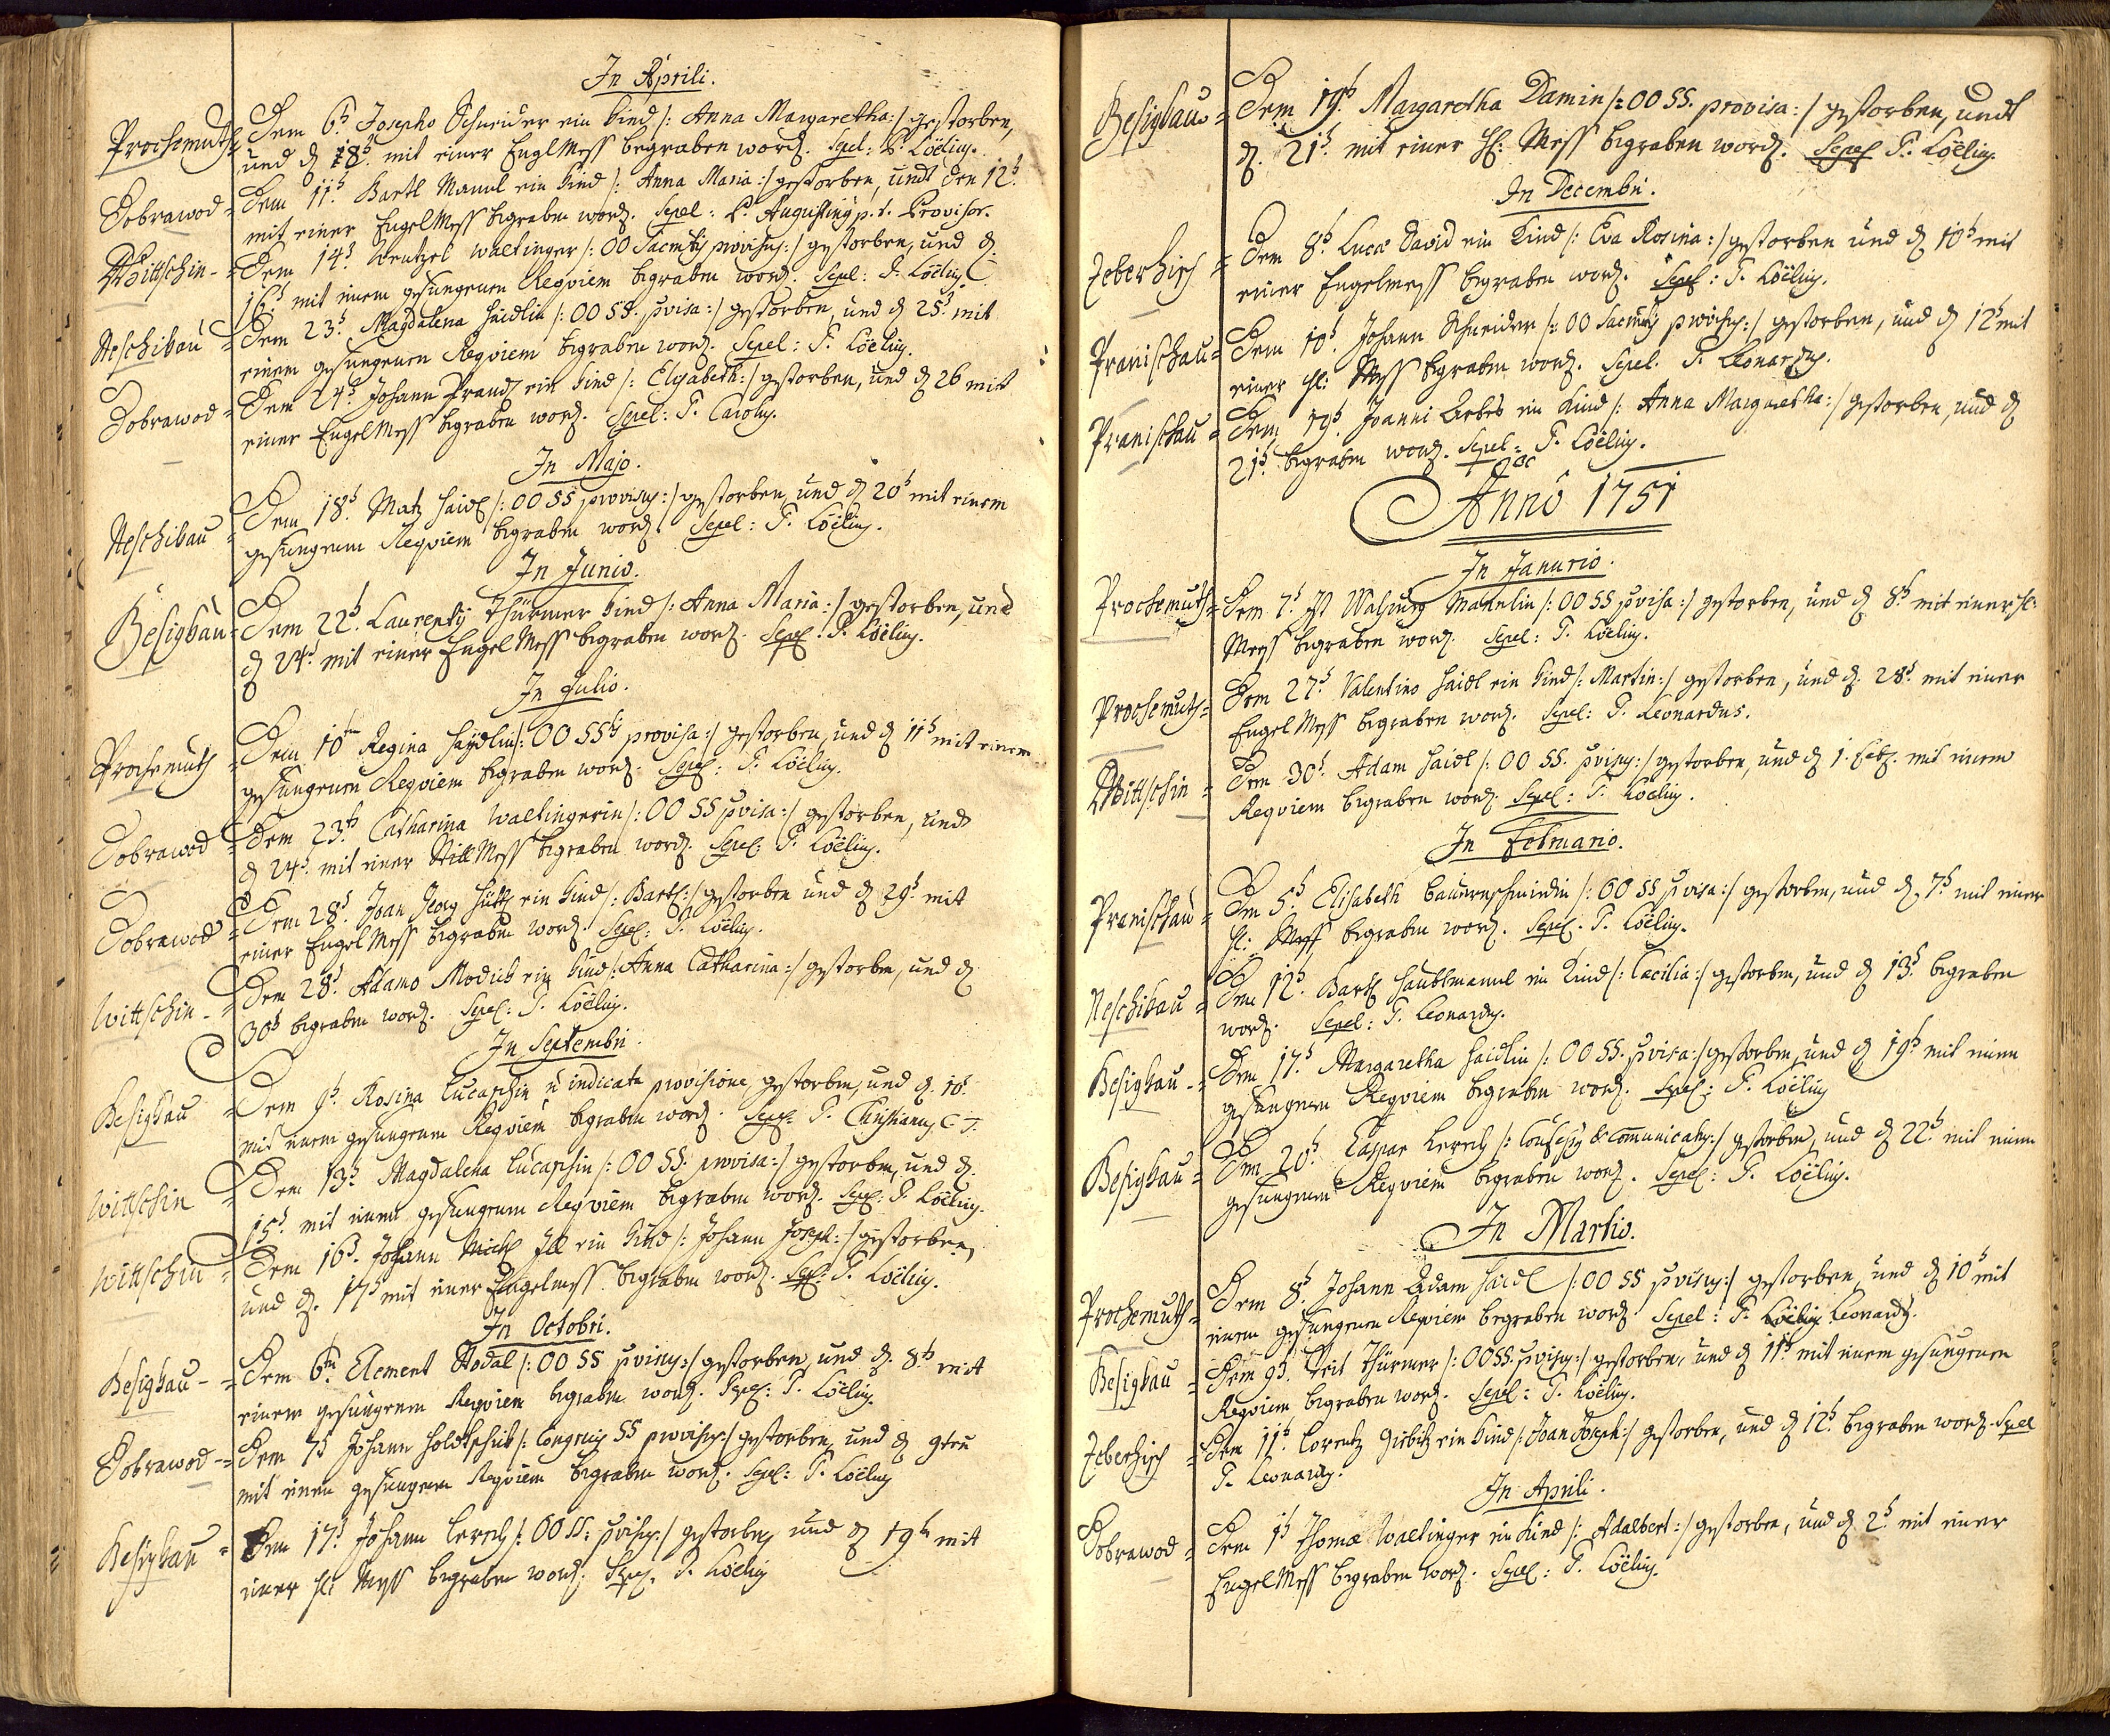 In Aprili.
Prochomuth = Dem 6t. Josepho Schneider ein Kind /: Anna Margaretha :/ gestorben,
und d. 8t. mit einer Engl Mess begraben word. Sepel: P. Loëlius.
Dobrawod = Dem 11t. Bartl Mannl ein Kind /: Anna Maria :/ gestorben, undt den 12t.
mit einer Engel Mess begraben word. Sepel: P. Augustinus p. t. Provisor.
Wittschin = Dem 14t. Wentzel Waltinger /: OO Sacmtis provisus :/ gestorben, und d.
16t. mit einem gesungenen Reqviem begraben word. Sepel: P. Loëlius
Neschikau = Dem 23t. Magdalena Haidlin /: OO SS. pvisa :/ gestorben, und d 25t. mit
einem gesungenen Reqviem begraben word. Sepel: P. Loëlius.
Dobrawod = Dem 24t. Johann ein Kind /: Elisabeth :/ gestorben, und d 26 mit
einer Engel Mess begraben word. Sepel: P. Carolus.
In Majo.
Neschikau = Dem 18t. Matz Haidl /: OO SS provisus :/ gestorben, und d 20t mit einem
gesungenem Reqviem begraben word. Sepel: P. Loëlius.
In Junio.
Besigkau = Dem 22t. Laurentii Thürmer Kind /: Anna Maria :/ gestorben, und
d 24t. mit einer Engel Mess begraben word. Sepel: P. Loëlius.
In Julio.
Prochomuth = Dem 10ten Regina Haydlin /: OO SStis provisa :/ gestorben, und d 11t mit einem
gesungenen Reqviem begraben word. Sepel: P. Loëlius.
Dobrawod = Dem 23t. Catharina Waltingerin /: OO SS pvisa :/ gestorben, und
d 24t. mit einer Still Mess begraben word. Sepel: P. Loëlius.
Dobrawod = Dem 28t. Joan Georg ein Kind /: Bartl :/ gestorben und d 29t mit
einer Engel Mess begraben word. Sepel: P. Loëlius.
Wittschin = Dem 28t. Adamo Modick ein Kind /: Anna Catharina :/ gestorben, und d
30t begraben word. Sepel: P. Loëlius.
In Septembri.
Besigkau = Dem 9t. Rosina Lucaschin indicata provisione, gestorben, und d. 10t.
mit einem gesungenem Reqviem begraben word. Sepel: P. Christianus
Wittschin = Dem 13t. Magdalena Lucaschin /: OO SS. provisa :/ gestorben, und d.
15t. mit einem gesungenem Reqviem begraben word. Sepel: P. Loëlius.
Wittschin = Dem 16t. Johann Michl Ill ein Kind /: Johann Joseph :/ gestorben,
und d. 17t mit einer Engelmess begraben word. Sepel: P. Loëlius.
In Octobri.
Besigkau = Dem 6ten Clement Stodal /: OO SS pvisus :/ gestorben, und d. 8t mit
einem gesungenem Reqviem begraben word. Sepel: P. Loëlius.
Dobrawod = Dem 7t Johann Holdtschick /: Congruis SS provisus :/ gestorben, und d 9ten
mit einem gesungenem Reqviem begraben word. Sepel: P. Loëlius
Besigkau = Dem 17t Johann Lerch /: OO SS. pvisus :/ gestorben, und d 19ten mit
einer hl: Mess begraben word. Sepel. P. Loëlius
Besigkau = Dem 19t. Margaretha Damin /: OO SS. provisa :/ gestorben, undt
d. 21t. mit einer hl: Mess begraben word. Sepel P. Loëlius.
In Decembri.
Zeberhisch = Dem 8t. Lucae David ein Kind /: Eva Rosina :/ gestorben und d 10t mit
einer Engelmess begraben word. Sepel: P. Loëlius.
Pranischau = Dem 10t. Johann Schneider /: OO Sacmtis provisus :/ gestorben, und d 12t mit
einer hl: Mess begraben word. Sepel. P. Leonardus.
Pranischau = Dem 19t. Joanni Arbes ein Kind /: Anna Margaretha :/ gestorben, und d
21t. begraben word. Sepel: P. Loëlius.
Annô 1751
In Janurio.
Prochomuth = Dem 7t. Ist Walpurg Mannlin /: OO SS pvisa :/ gestorben, und d 8t mit einer hl:
Mess begraben word. Sepel: P. Loëlius.
Prochomuth = Dem 27t. Valentino Haidl ein Kind /: Martin :/ gestorben, und d. 28t. mit einer
Engel Mess begraben word. Sepel: P. Leonardus.
Wittschin = Dem 30t. Adam Haidl /: OO SS. pvisus :/ gestorben, und d 1. Feb. mit einem
Reqviem begraben word. Sepel: P. Loëlius.
In Februario.
Pranischau = Dem 5t Elisabeth Bauernschmidin /: OO SS pvisa :/ gestorben, und d 7t mit einer
hl: Mess begraben word. Sepel. P. Loëlius.
Neschikau = Dem 12t. Bartl Haubtmannl ein Kind /: Cacilia :/ gestorben, und d 13t. begraben
word. Sepel: P. Leonardus.
Besigkau = Dem 17t. Margaretha Haidlin /: OO SS. pvisa :/ gestorben, und d 19t mit einem
gesungenem Reqviem begraben word. Sepel: P. Loëlius
Besigkau = Dem 20t Caspar Lerch /: Confessus & comunicatus :/ gestorben, und d 22t. mit einem
gesungenem Reqviem begraben word. Sepel: P. Loëlius.
In Martio.
Prochomuth = Dem 8t. Johann Adam Haidl /: OO SS pvisus :/ gestorben, und d 10t mit
einem gesungenen Reqviem begraben word. Sepel: P. Loëlius Leonards.
Besigkau = Dem 9t. Veit Thürmer /: OO SS. pvisus :/ gestorben, und d 11t mit einem gesungenen
Reqviem begraben word. Sepel: P. Loëlius.
Zeberhisch = Dem 11t. Lorentz Girbitz ein Kind /: Joan Joseph :/ gestorben, und d 12t. begraben word. Sepel
P. Leonardus.
In Aprili.
Dobrawod = Dem 1t Thomæ Waltinger ein Kind /: Adalbert :/ gestorben, und d 2t. mit einer
Engel Mess begraben word. Sepel: P. Loëlius.